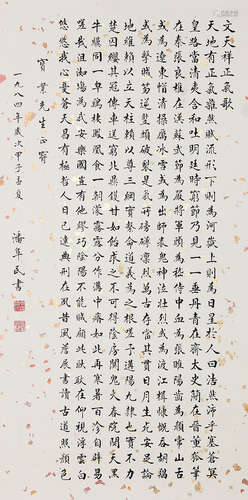 文天祥正氣歌
天地有正氣雜然賦流形下則為河嶽上則為日星於人曰浩然沛乎塞蒼冥
皇路當清夷含和吐明廷時窮節乃見一一垂丹青在齊太史簡在晉董狐筆
在秦張良椎在漢蘇武節為嚴將軍頭為嵇侍中血為張睢陽齒為顏常山舌
或為遼東帽清操厲冰雪或為出師表鬼神泣壯烈或為渡江楫慷慨吞胡羯
或為擊賊笏逆豎頭破裂是氣所磅礴凜烈萬古存當其貫日月生死安足論
地維賴以立天柱賴以尊三綱實繫命道義為之根嗟予遘陽九隸也實不力
楚囚纓其冠傳車送窮北鼎鑊甘如飴求之不可得陰房闐鬼火春院閟天黑
牛驥同一皂雞棲鳳凰食一朝濛霧露分作溝中瘠如此再寒暑百沴自辟易
嗟哉沮洳場為我安樂國豈有他繆巧陰陽不能賊顧此耿耿在仰視浮雲白
悠悠我心悲蒼天曷有極哲人日已遠典刑在夙昔風簷展書讀古道照顏色
寶業先生正
一九八四年歲次甲子孟夏
潘阜民書